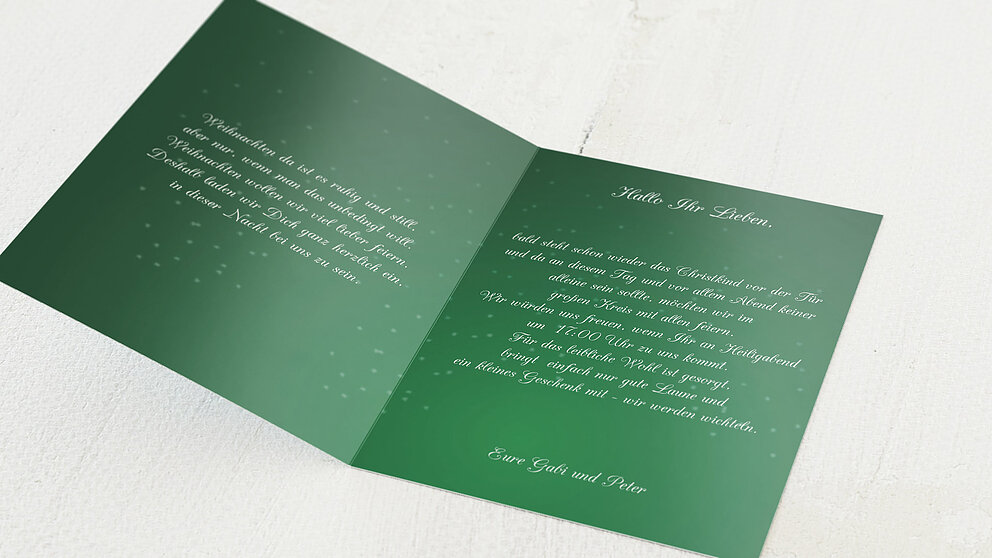 Weihnachten da ist es ruhig und still,
aber nur, wenn man das unbedingt will.
Weihnachten wollen wir viel lieber feiern.
Deshalb laden wir Dich ganz herzlich ein,
in dieser Nacht bei uns zu sein.
Hallo Ihr Lieben,
bald steht schon wieder das Christkind vor der Tür
und da an diesem Tag und vor allem Abend keiner
alleine sein sollte, möchten wir im
großen Kreis mit allen feiern.
Wir würden uns freuen, wenn Ihr an Heiligabend
um 17:00 Uhr zu uns kommt.
Für das leibliche Wohl ist gesorgt,
bringt einfach nur gute Laune und
ein kleines Geschenk mit - wir werden wichteln.
Eure Gabi und Peter